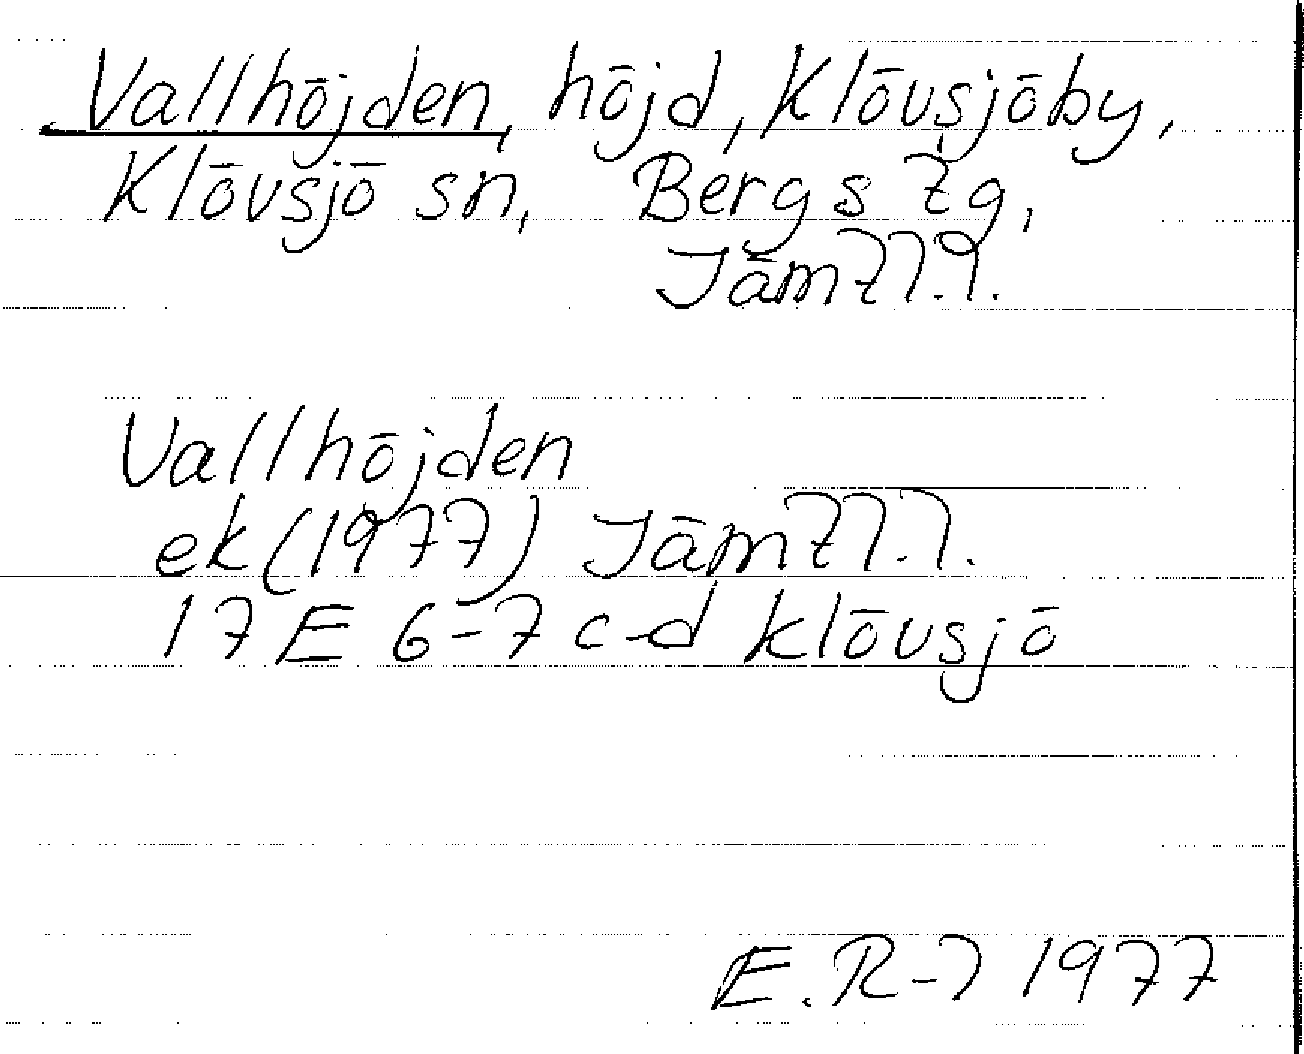 Vallhöjden, höjd, Klövsjöby,
Klövsjö sn, Bergs tg,
Jämtl.l.
Vallhöjden
ek (1977) Jämtl.l.
17E 6-7 c-d Klövsjö
E.R-l 1977